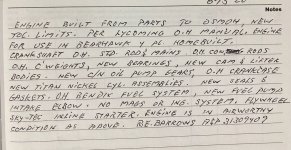 Notes
ENGINE BUILT FROM PARTS TO OSMOH, NEW
TOL. LIMITS. PER LYCOMING O.H MANUAL. ENGINE
FOR USE IN BEARHAWK 4 PL HOMEBUILT.
CRANKSHAFT O.H. STD. ROD & MAINS. OH. RODS
O.H. C WEIGHTS, NEW BEARINGS, NEW CAM & LIFTER
BODIES. NEW C/N OIL PUMP GEARS, O.H. CRANKCASE
NEW TITAN NICKEL CYL. ASSEMBLIES. NEW SEALS &
GASKETS. OH BENDIX FUEL SYSTEM, NEW FUEL PUMP
INTAKE ELBOW. NO MAGS OR IGN. SYSTEM. FLYWHEEL
SKY-TEC INLINE STARTER. ENGINE IS IN AIRWORTHY
CONDITION AS ABOVE. BARROWS A&P